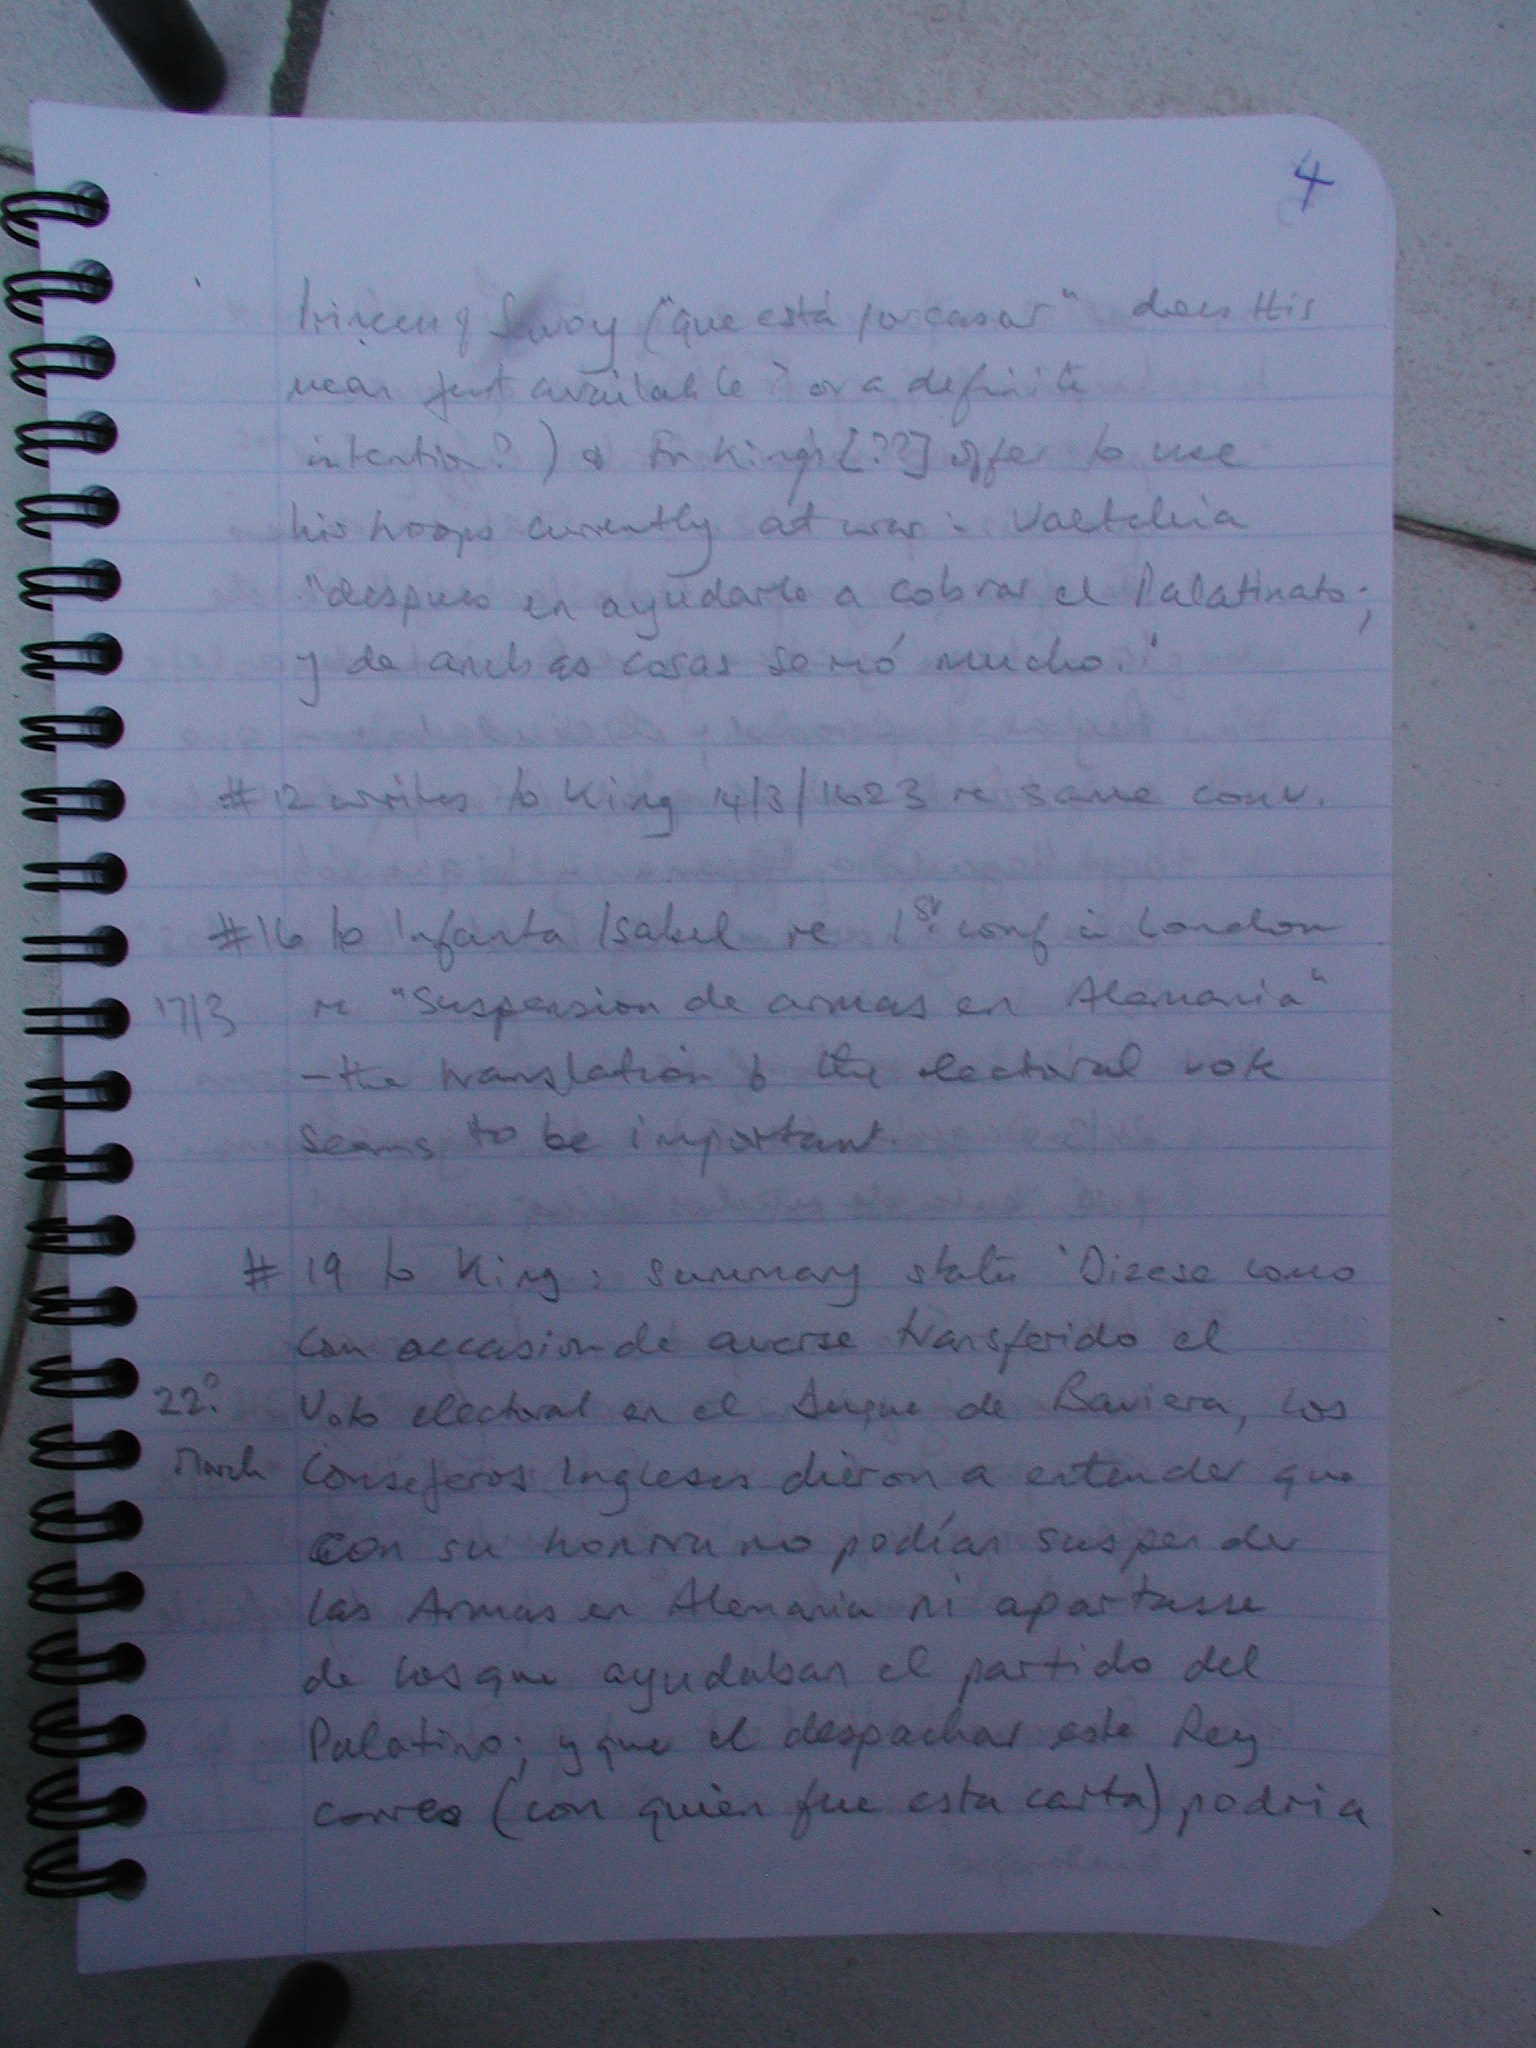 4
Princen of Savoy ("que está por casar" does this
mean just available? or a definite
intention?) & King's [??] offer to use
his troops currently at war in Valtelina
"despues en ayudarle a cobrar el Palatinato;
y de ambas cosas se rió mucho."
#12 writes to King 14/3/1623 re same conv.
#16 to Infanta Isabel re 1st conf in London
17/3 re "Suspension de armas en Alemania"
- the translation of the electoral vote
seems to be important.
# 19 to King: summary states 'Dizese como
con occasion de averse transferido el
22º Voto electoral en el Duque de Baviera, los
March Consejeros Ingleses dieron a entender que
con su honrra no podían suspender
las Armas en Alemania ni apartasse
de los que ayudaban el partido del
Palatino; y que el despachar este Rey
correo (con quien fue esta carta) podria